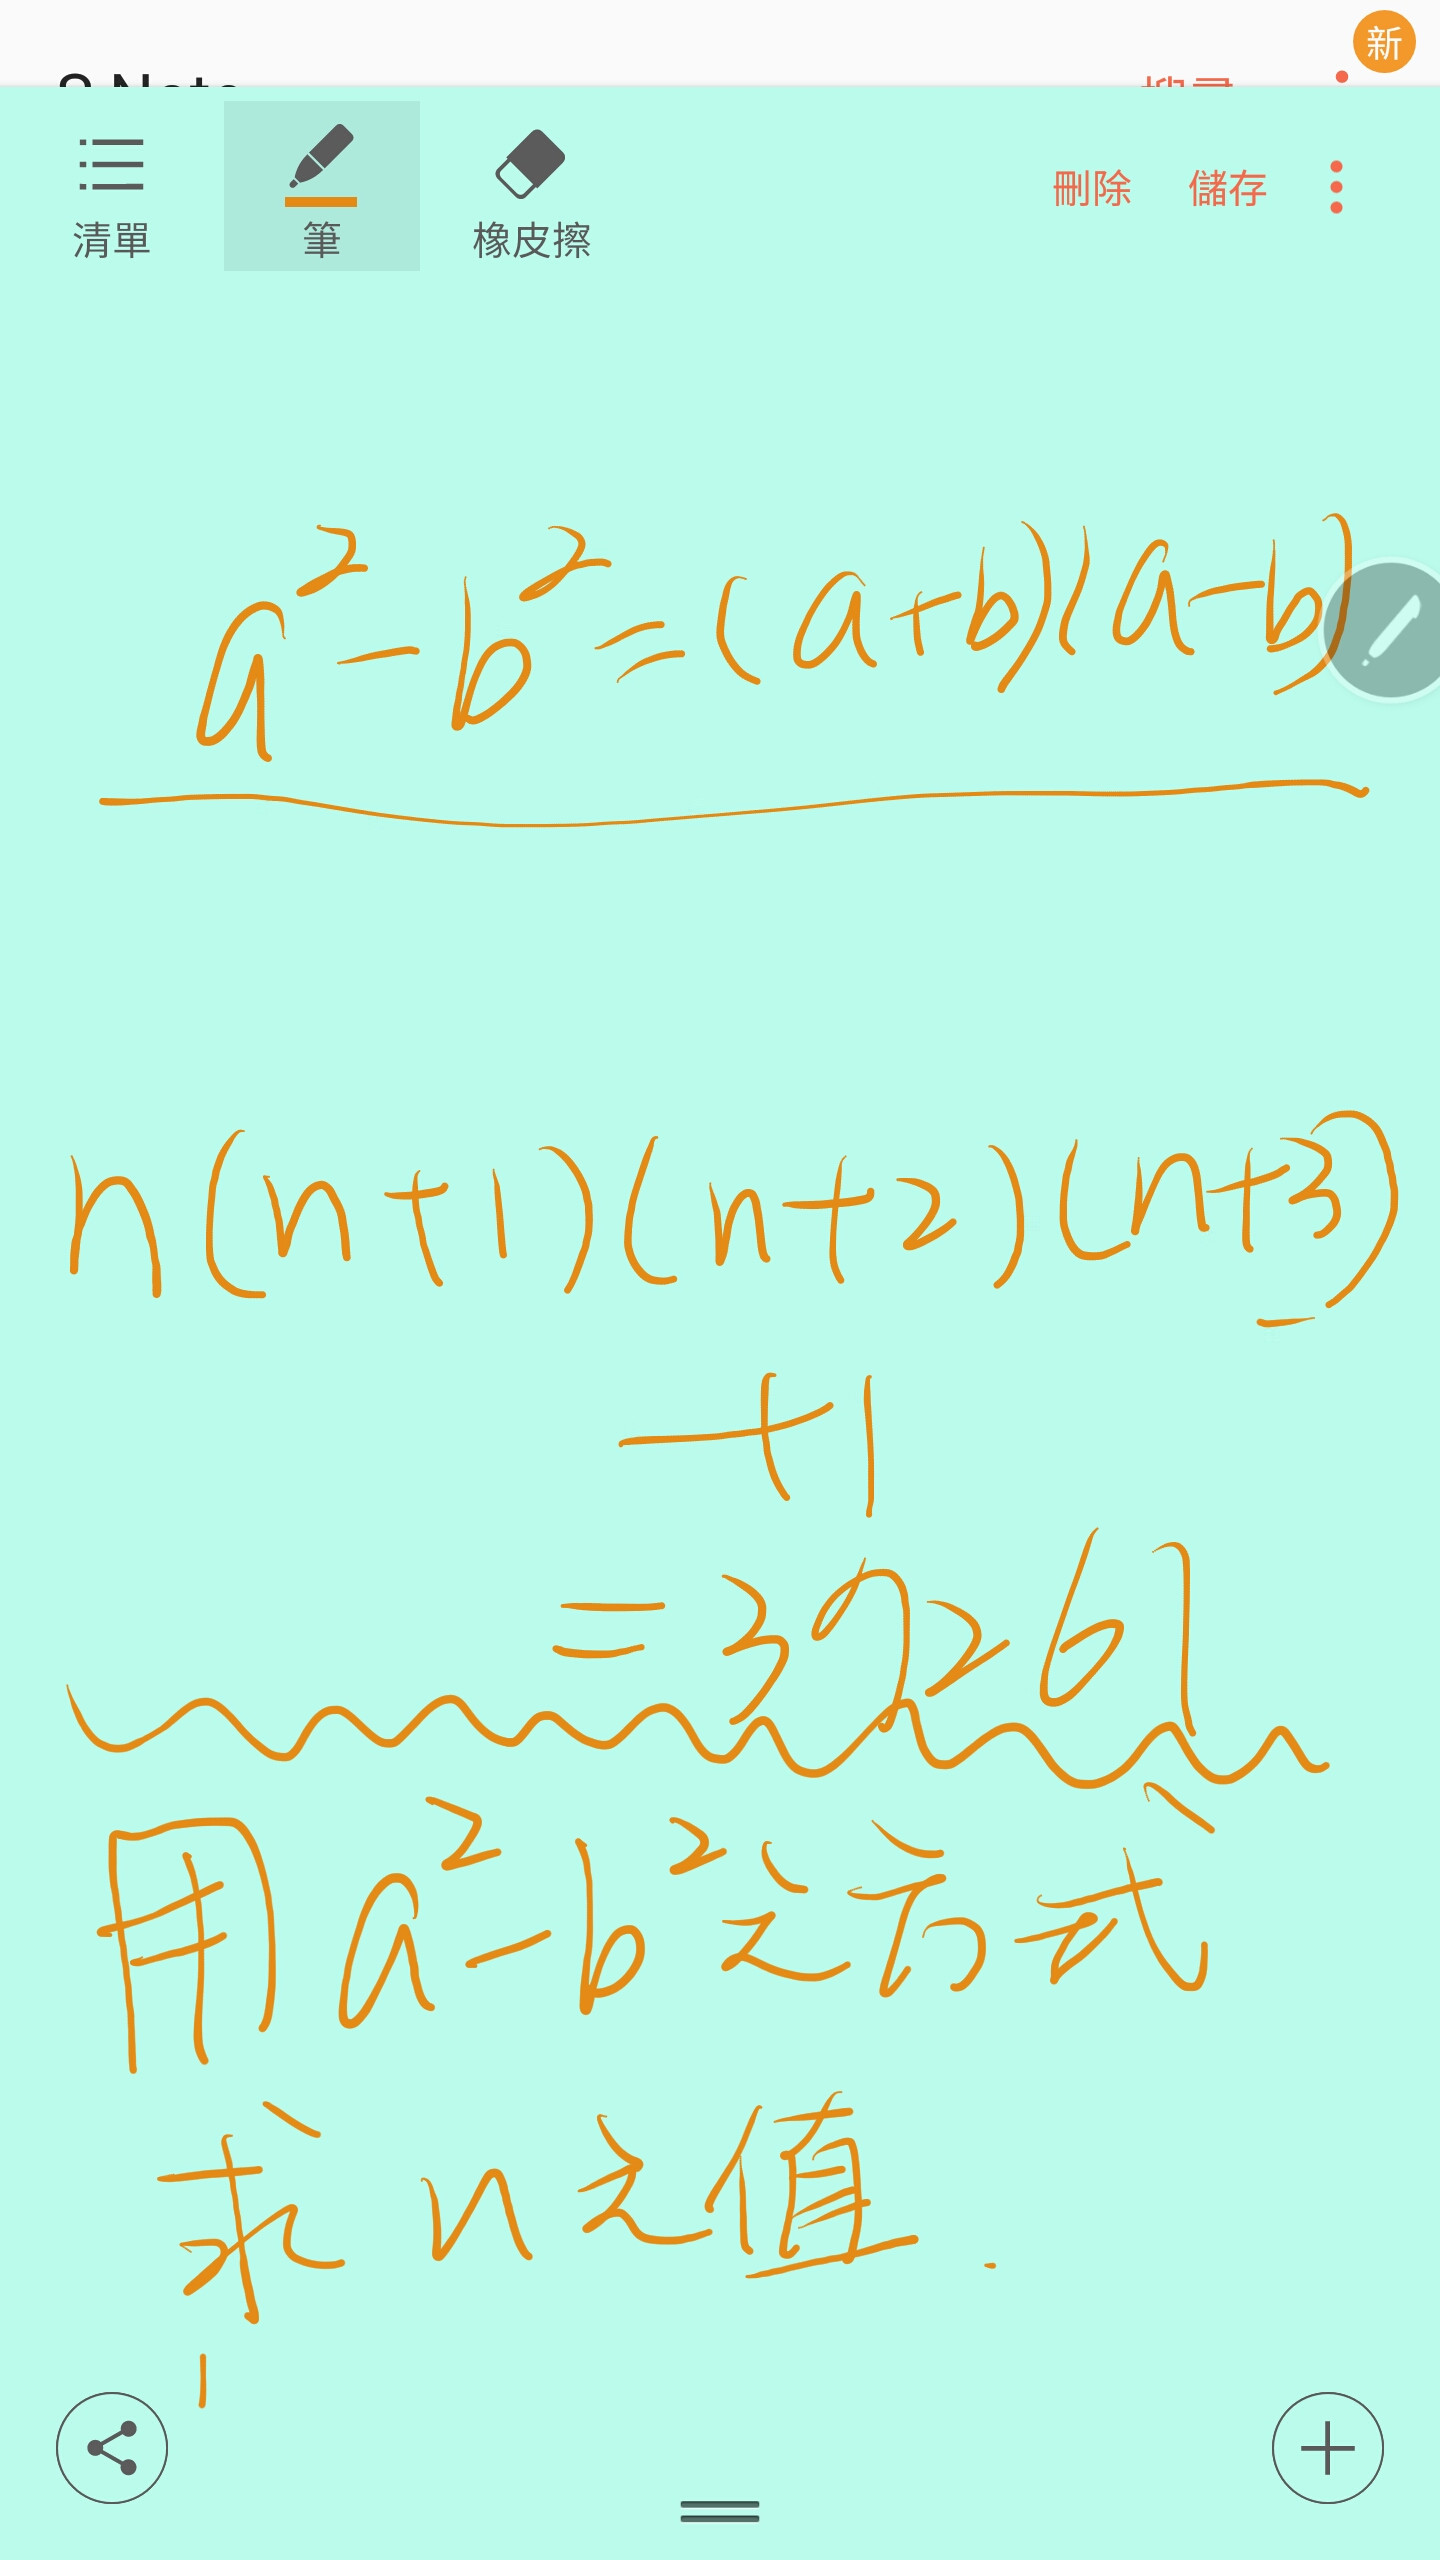 新
清單 筆 橡皮擦 刪除 儲存
a²-b²=(a+b)(a-b)
n(n+1)(n+2)(n+3)
+1
=37261
用a²-b²之方式
求n之值.